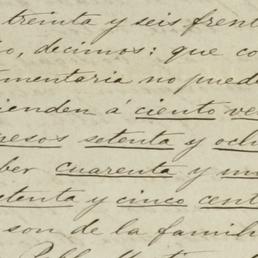 treinta y seis frent
o, decimos: que co
mentaria no puede
ienden á ciento ve
pesos setenta y och
ber cuarenta y un
etenta y cinco cent
son de la famili